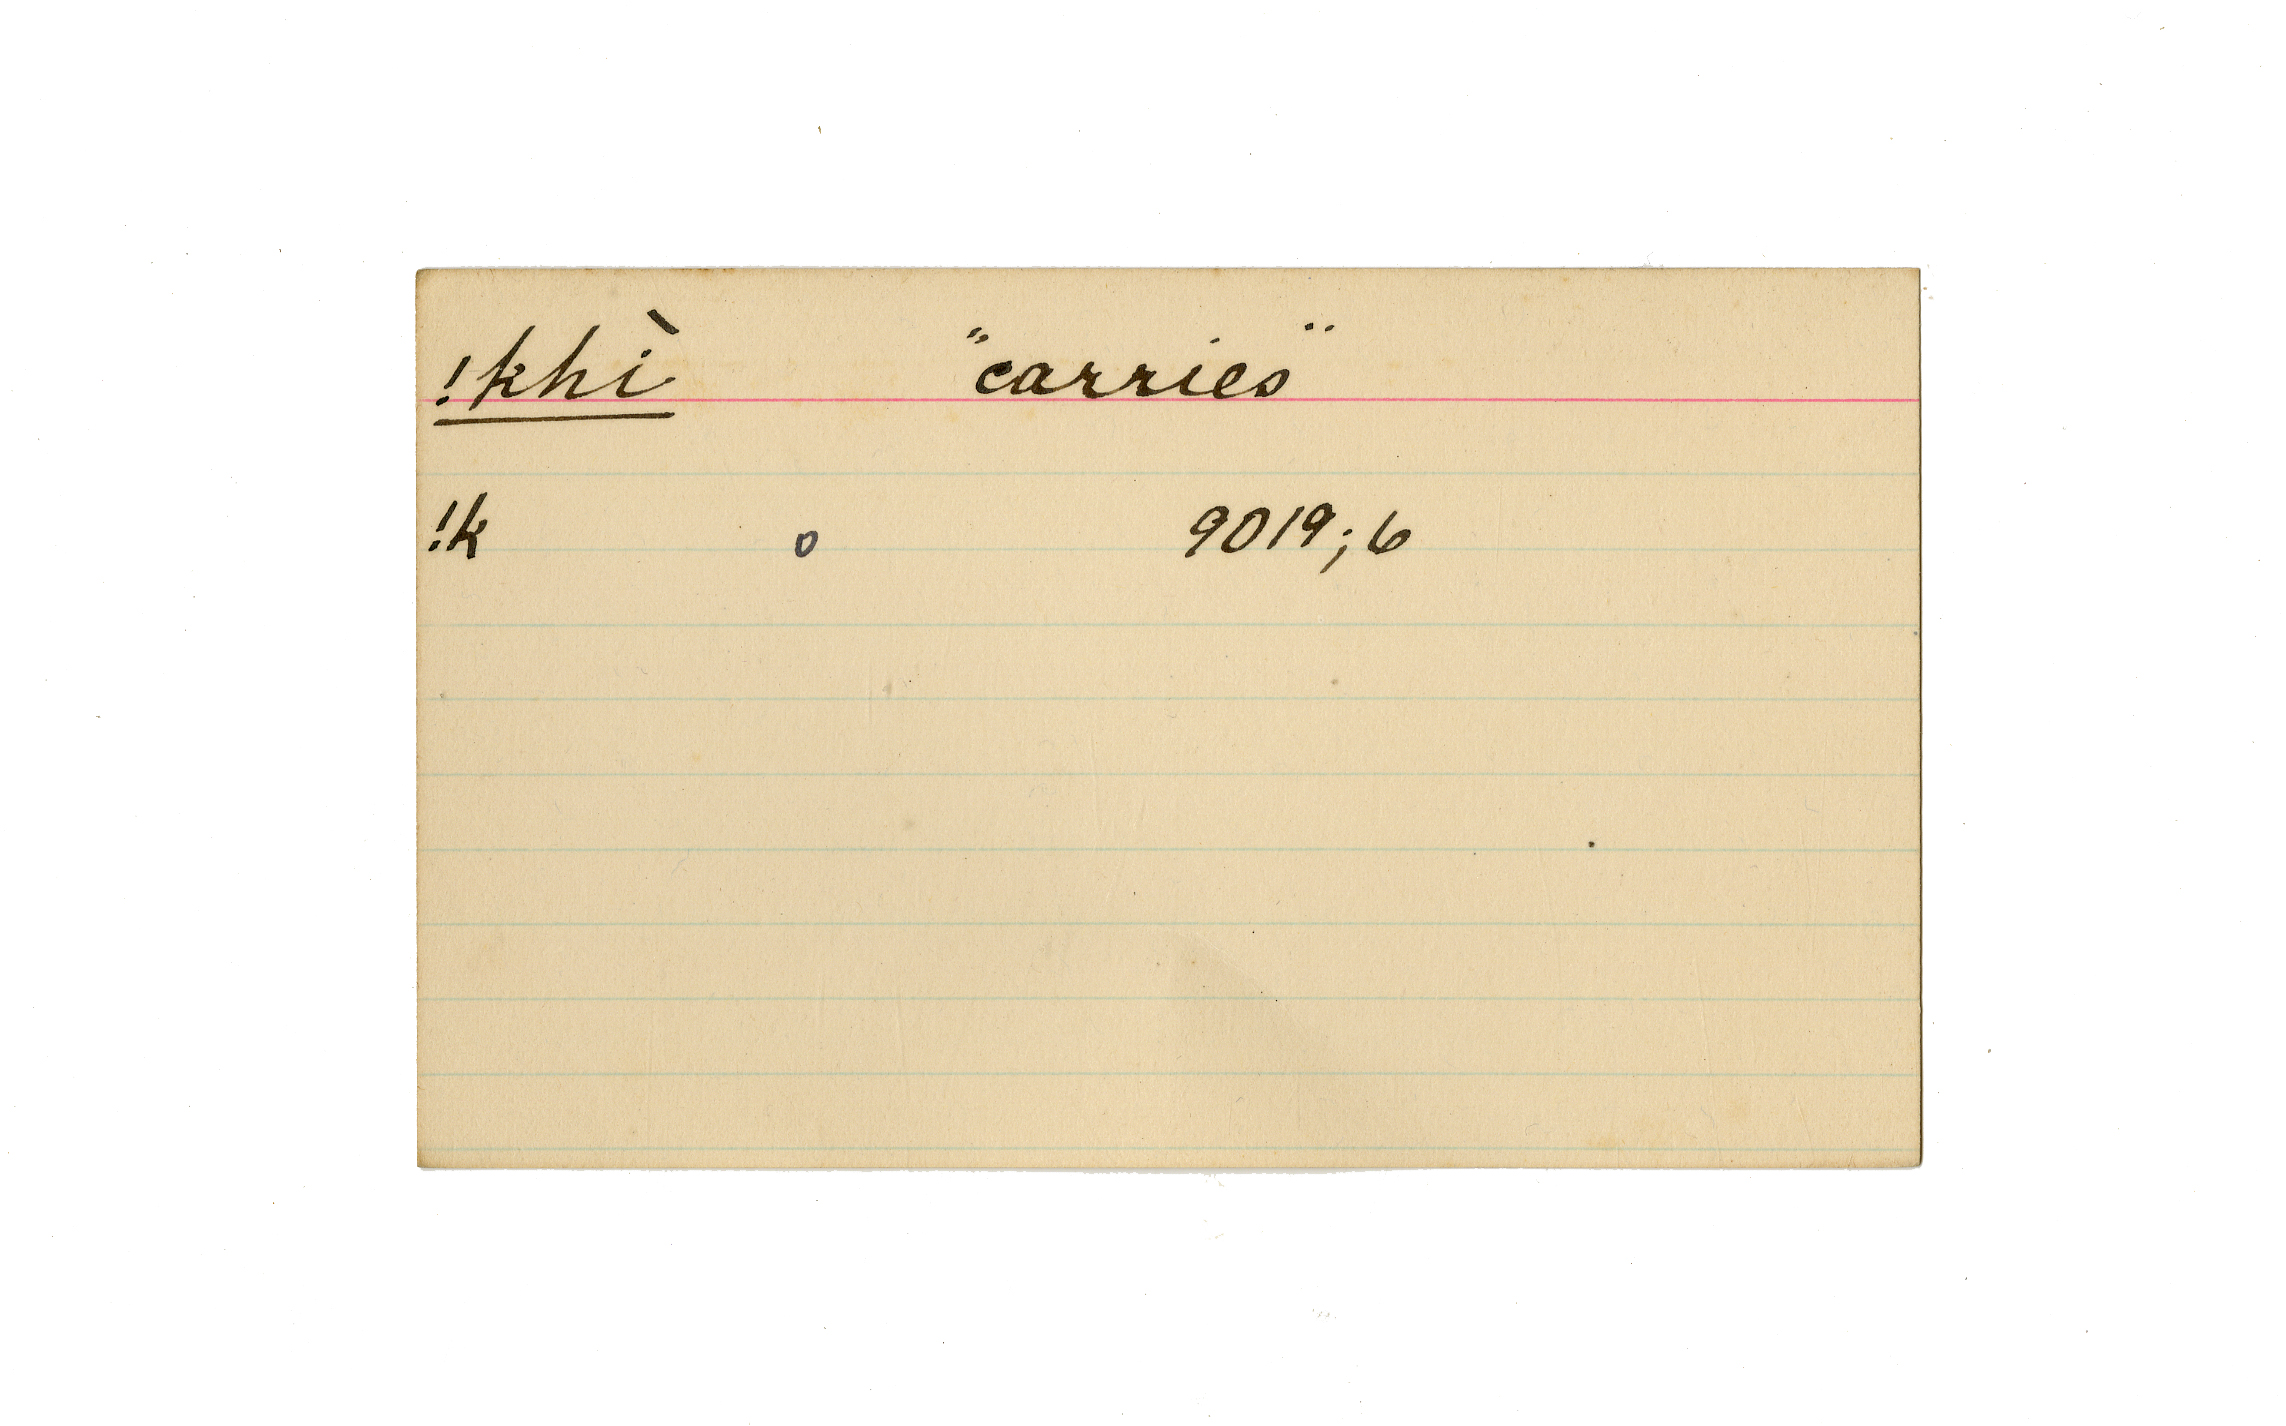 !khì "carries"
!k o 9019; 6